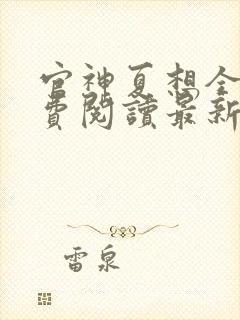 官神夏想全
費閱讀最新
雷泉